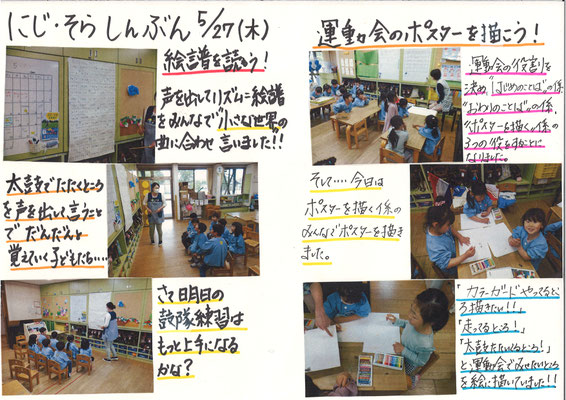 にじ・そら しんぶん 5/27(木)
絵譜を読もう！
声を出してリズム=絵譜
をみんなで"小さな世界"の
曲に合わせ言いました!!
太鼓でたたくところ
を声を出して言うこと
で だんだんと
覚えていく子どもたち……
さて明日の
鼓隊練習は
もっと上手になる
かな？
運動会のポスターを描こう！
運動会の役割を
決め、"はじめのことば"の係
"おわりのことば"の係
"ポスターを描く"係の
3つの役をすることに
なりました。
そして……今日は
ポスターを描く係の
みんなでポスターを描き
ました。
「カラーガードやってるとこ
ろ描きたい!!」
「走ってるところ！」
「太鼓をたたいてるところ！」
と運動会で見せたいところ
を絵に描いていました!!